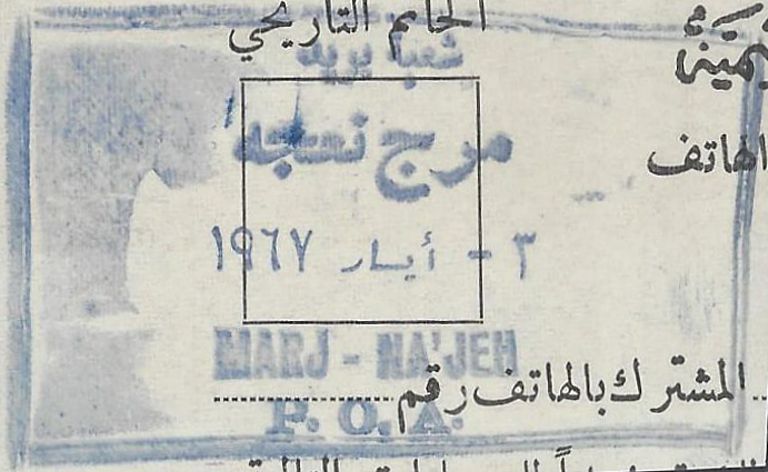 الخاتم التاريخي
شعبة بريد
مرج نعجه
الهاتف
٣ - أيار ١٩٦٧
MARJ - NA'JEH
المشترك بالهاتف رقم
P. O. A.